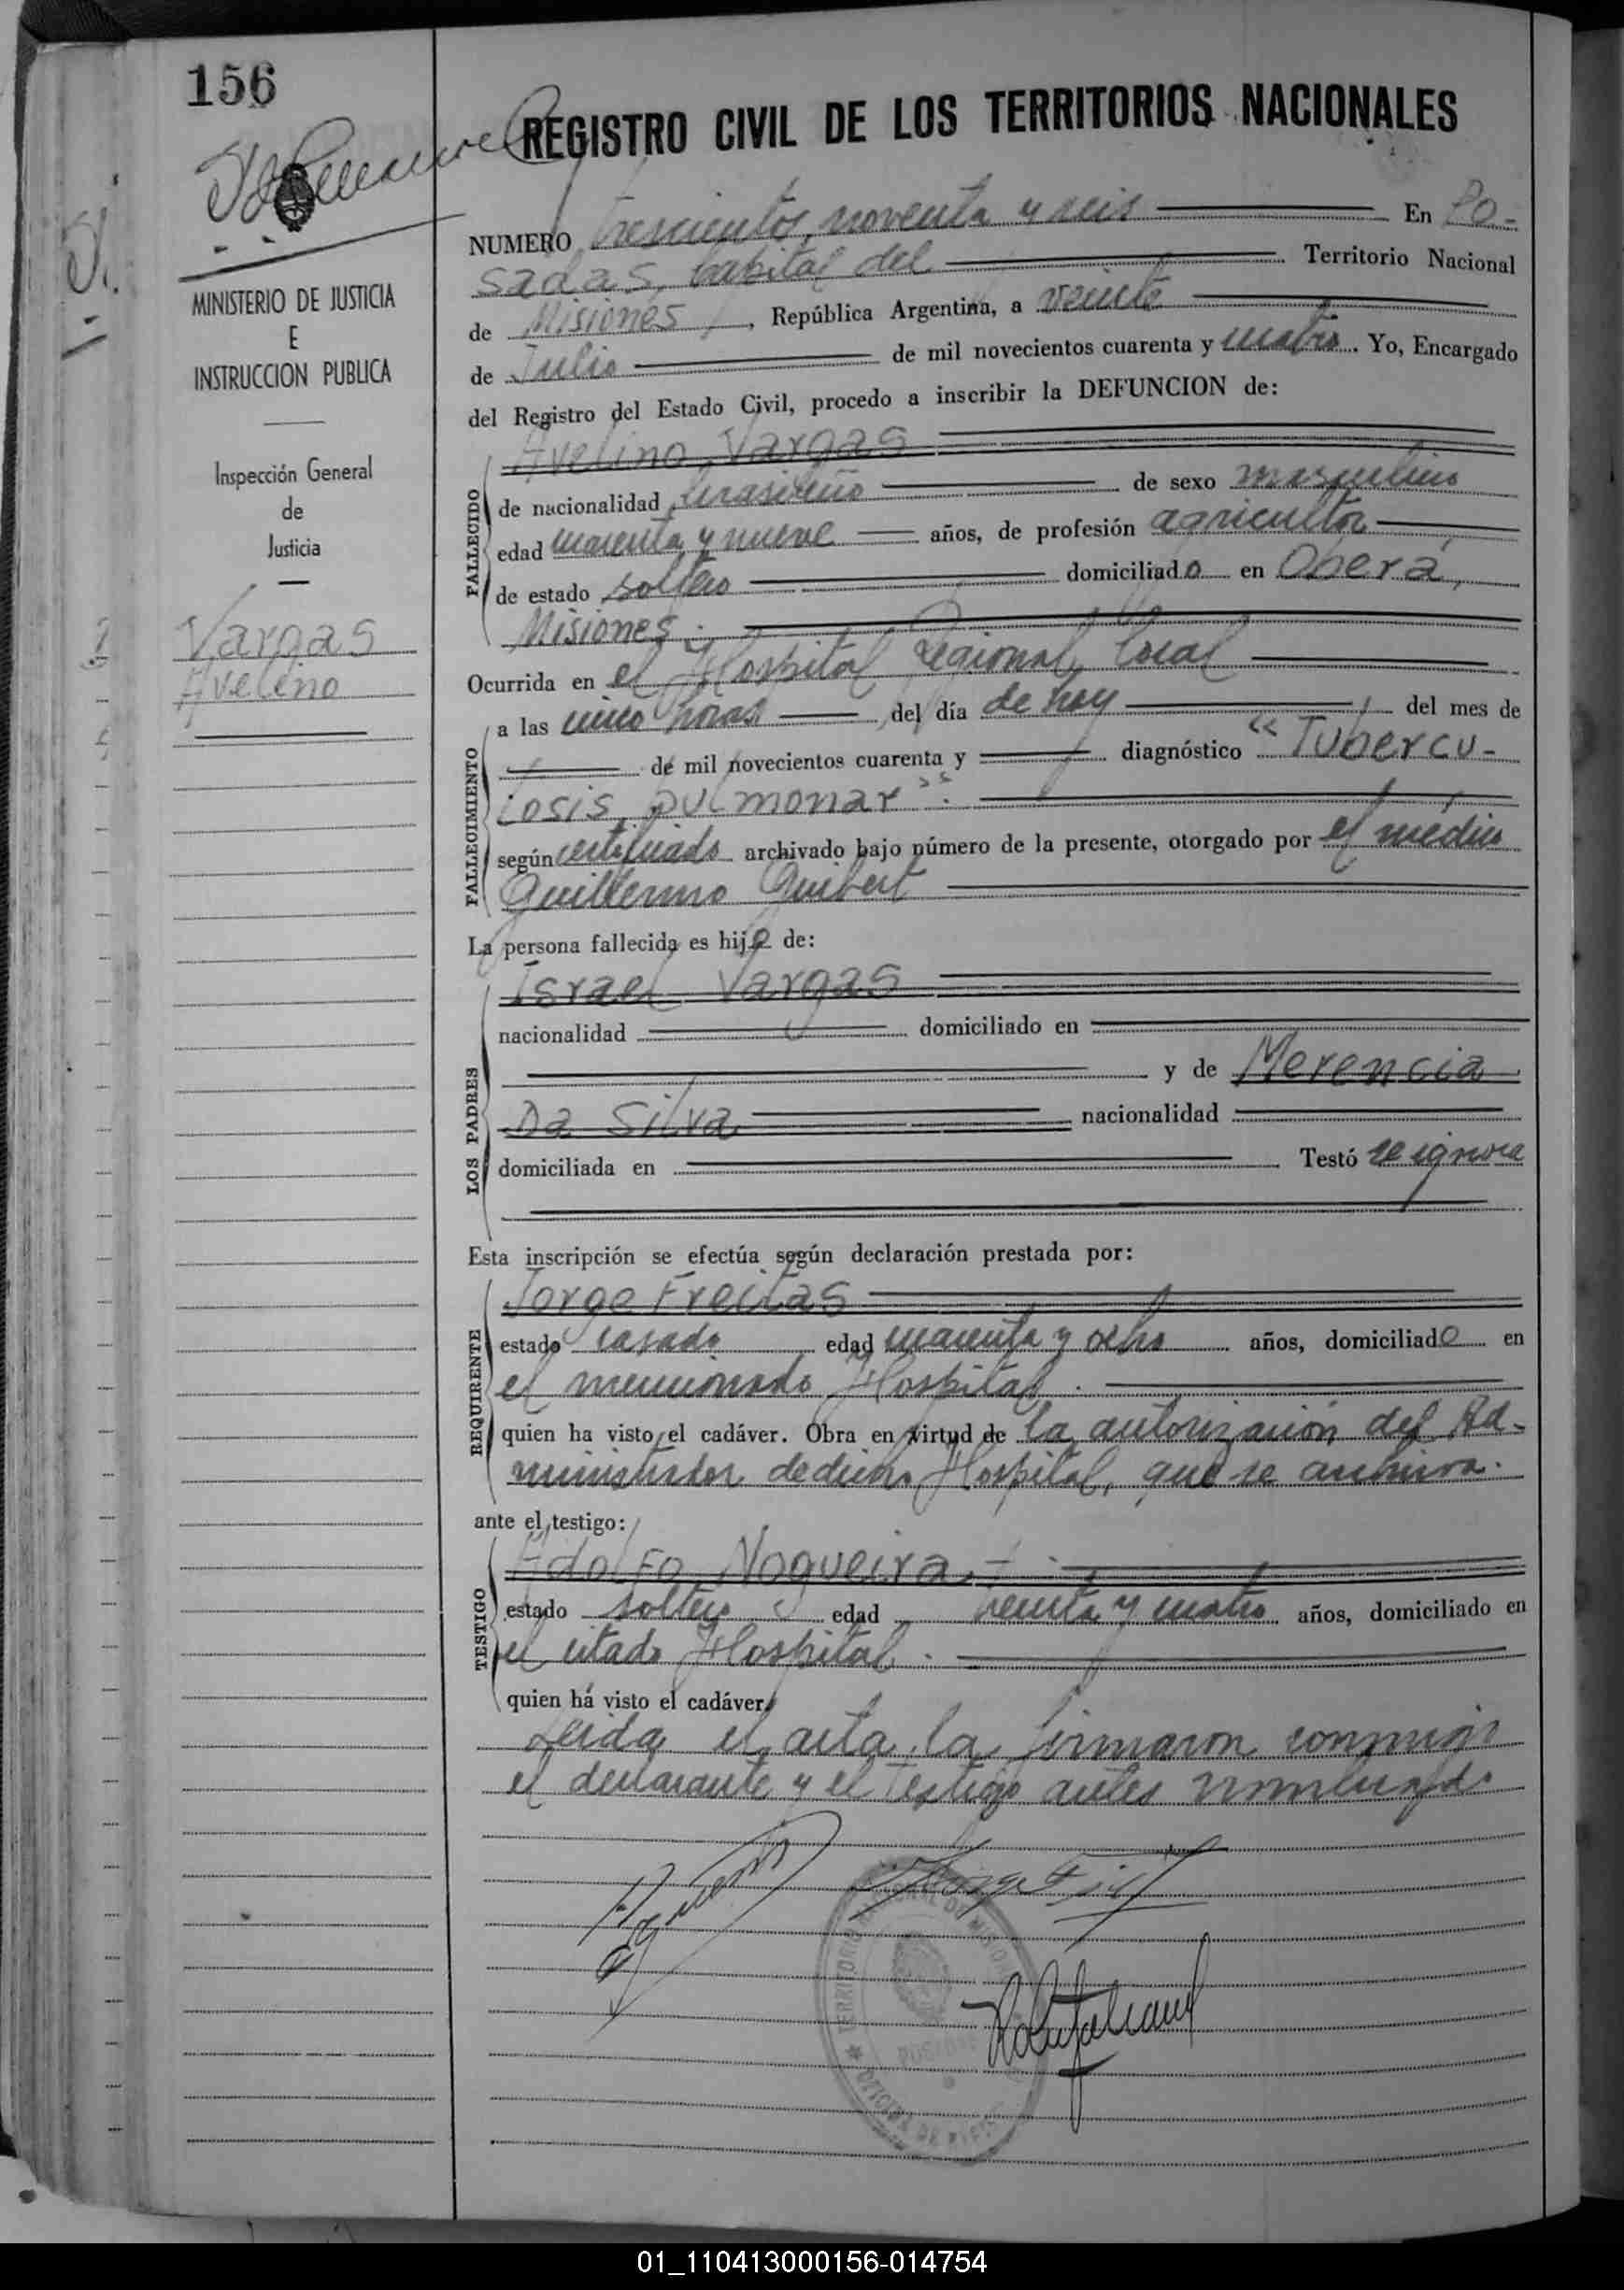 156
REGISTRO CIVIL DE LOS TERRITORIOS NACIONALES
NUMERO trescientos noventa y seis En Po-
sadas, Capital del Territorio Nacional
de Misiones, República Argentina, a veinte
de Julio de mil novecientos cuarenta y cuatro. Yo, Encargado
del Registro del Estado Civil, procedo a inscribir la DEFUNCION de:
MINISTERIO DE JUSTICIA
E
INSTRUCCION PUBLICA
Inspección General
de
Justicia
Vargas
Avelino
FALLECIDO
Avelino Vargas
de nacionalidad brasileño de sexo masculino
edad cuarenta y nueve años, de profesión agricultor
de estado soltero domiciliado en Oberá,
Misiones.
Ocurrida en el Hospital Regional local
FALLECIMIENTO
a las cinco horas del día de hoy del mes de
de mil novecientos cuarenta y diagnóstico "Tubercu-
losis pulmonar".
según certificado archivado bajo número de la presente, otorgado por el médico
Guillermo Guibert
La persona fallecida es hijo de:
LOS PADRES
Israel Vargas
nacionalidad domiciliado en
y de Merencia
Da Silva nacionalidad
domiciliada en Testó se ignora
Esta inscripción se efectúa según declaración prestada por:
REQUIRENTE
Jorge Freitas
estado casado edad cuarenta y ocho años, domiciliado en
el mencionado Hospital.
quien ha visto el cadáver. Obra en virtud de la autorización del Ad-
ministrador de dicho Hospital, que se archiva.
ante el testigo:
TESTIGO
Adolfo Nogueira
estado soltero edad treinta y cuatro años, domiciliado en
el citado Hospital.
quien há visto el cadáver.
Leída el acta, la firmaron conmigo
el declarante y el testigo antes nombrado
TERRITORIO NACIONAL DE MISIONES
01_110413000156-014754